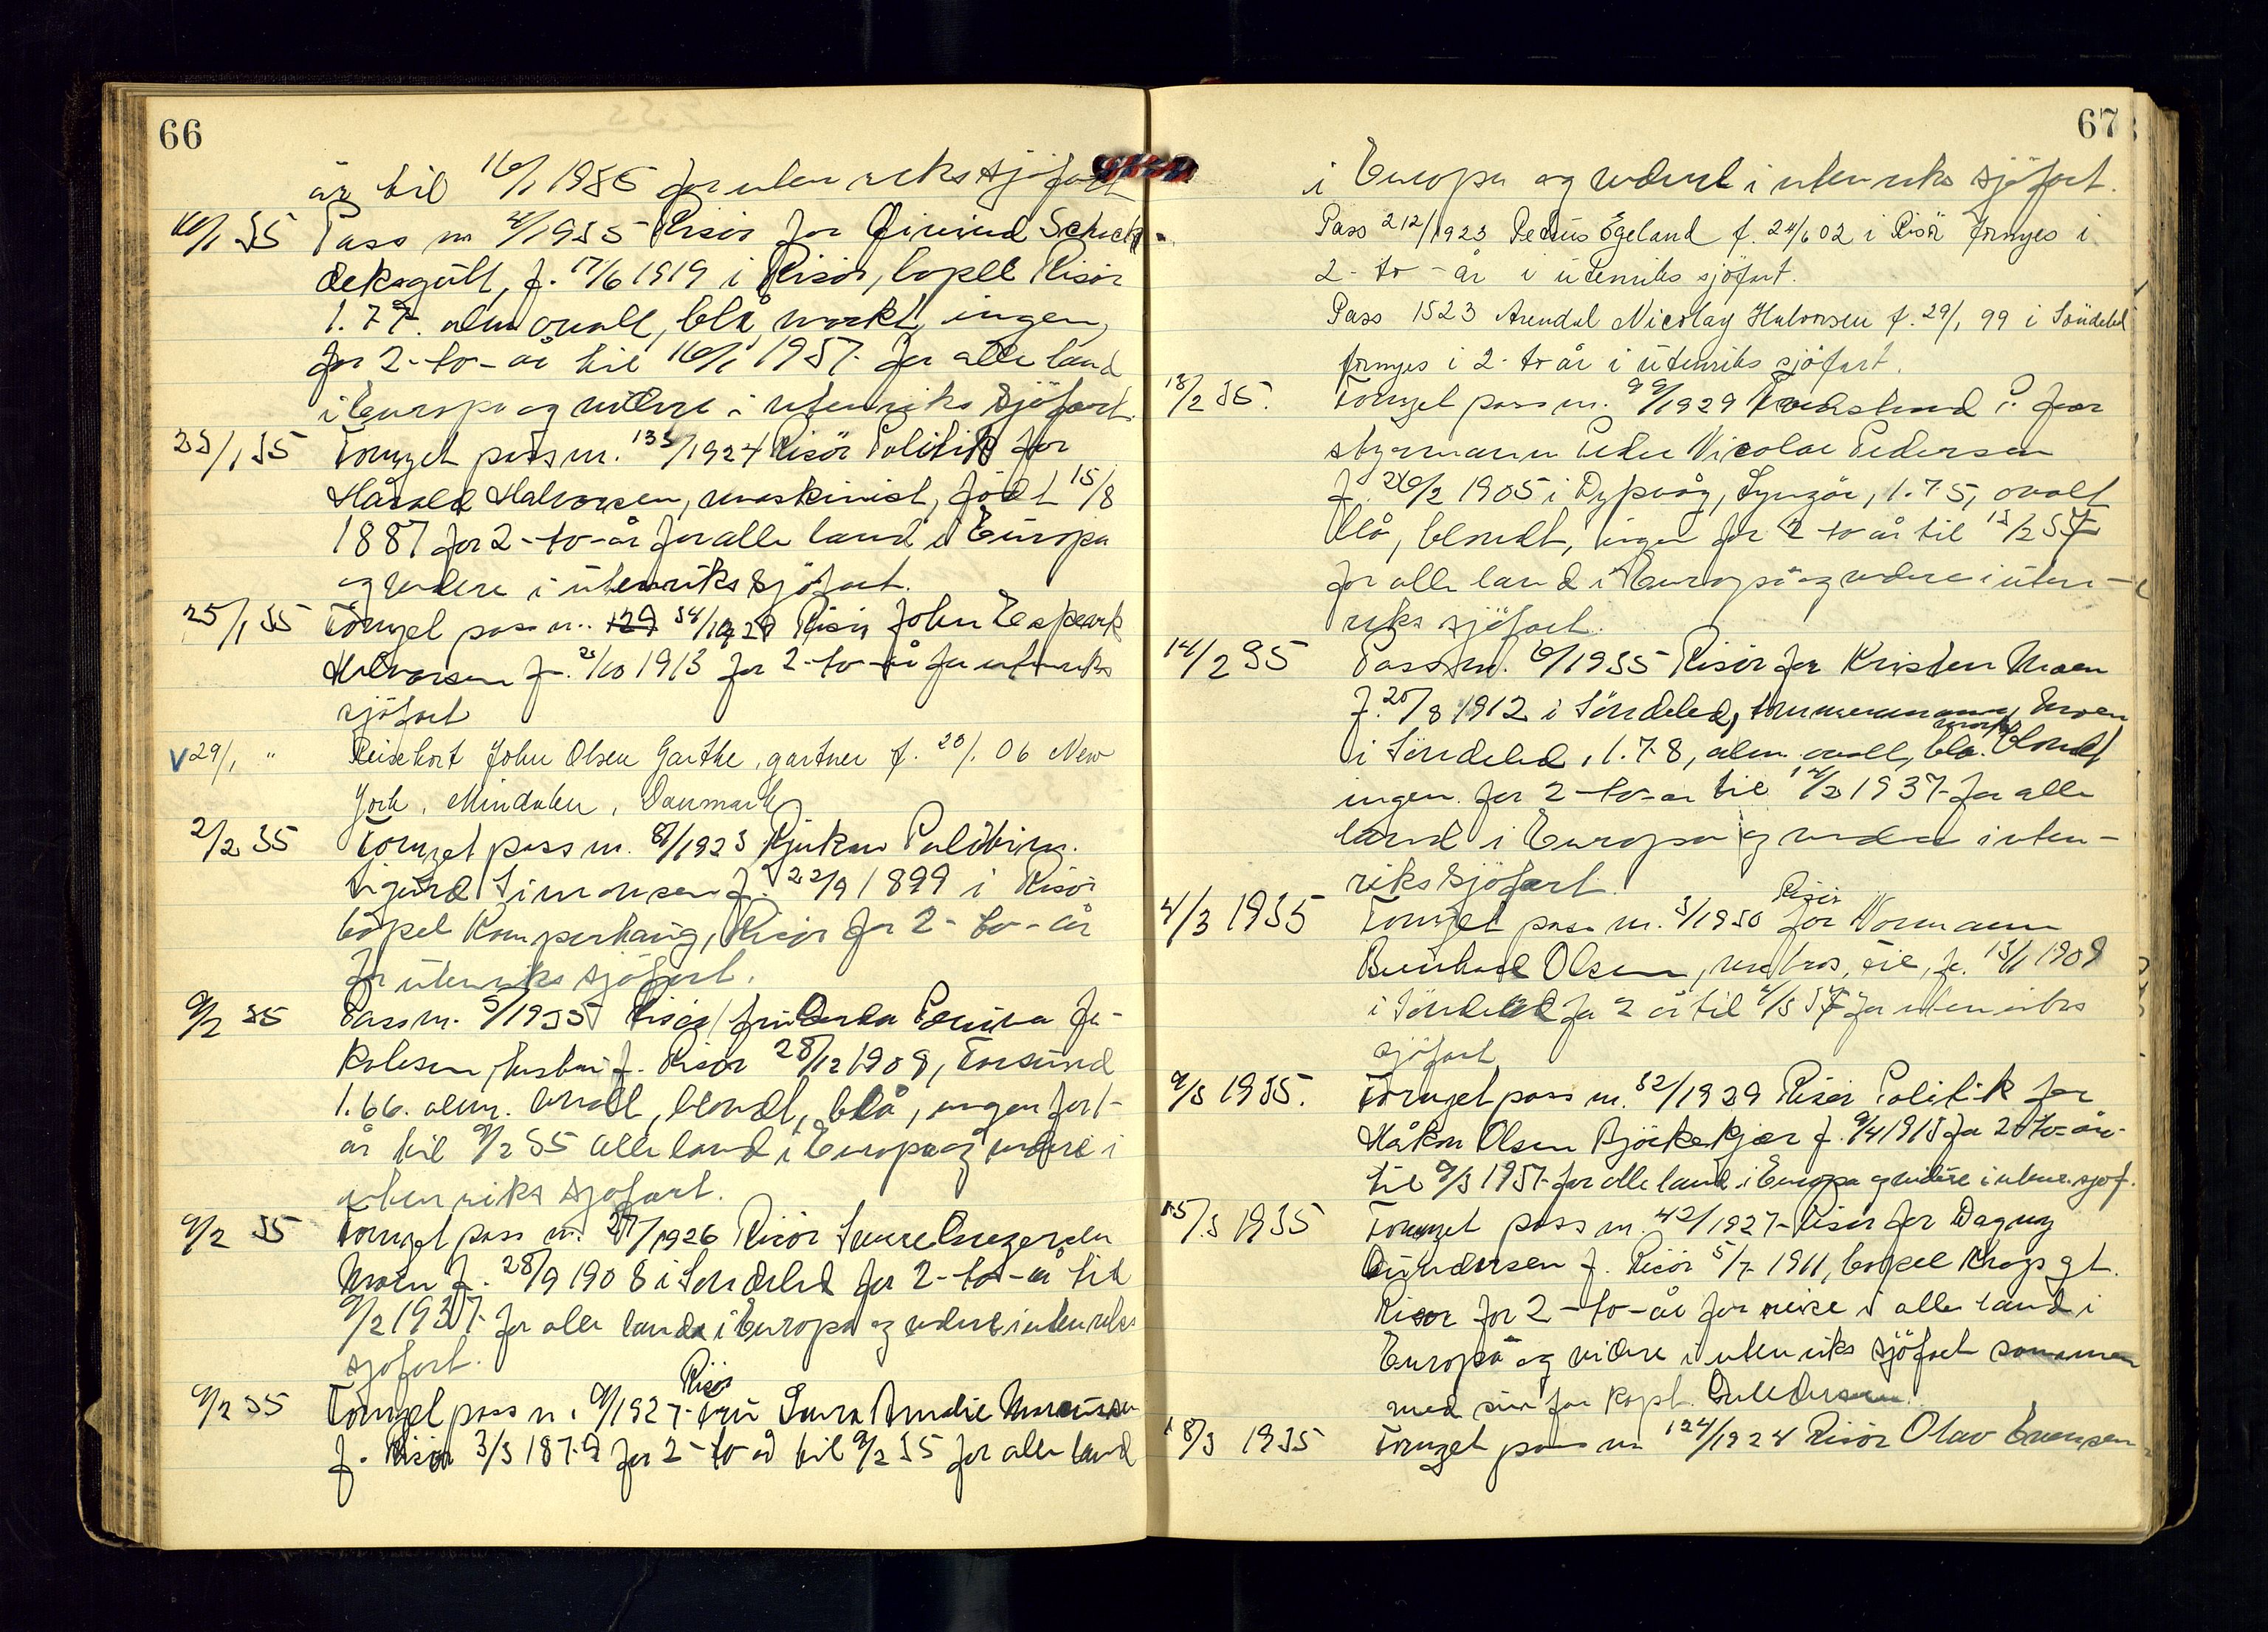 66
år til 16/1 1936 for utenriks sjöfart
16/1 35 Pass nr 4/1935 Risör for Eivind
deksgutt, f. 17/6 1919 i Risör, bopel Risör
1.77. alm ovalt, blå, mörkt, ingen,
for 2-to-år til 16/1 1937. for alle land
i Europa og videre i utenriks sjöfart.
23/1 35 Fornyet pass nr. 133/1924 Risör Politik for
Harald Halvorsen, maskinist, född 15/8
1887 for 2-to-år for alle land i Europa
og videre i utenriks sjöfart.
25/1 35 Fornyet pass nr. 129 34/1929 Risör John
Halvorsen f. /10 1913 for 2-to-år for utenriks
sjöfart
V 29/1 " Reisekort John Olsen Garthe, gartner f. 20/1 06 New
York, Mindalen, Danmark
2/2 35 Fornyet pass nr. 81/1923 Rjukan
Sigurd Simonsen f. 22/9 1899 i Risör
bopel Kamperhaug, Risör for 2-to-år
for utenriks sjöfart.
9/2 35 Pass nr. 5/1935 Risör fru
hustru f. Risör 28/12 1908,
1.66. alm. ovalt, blondt, blå, ingen for 1-
år til 9/2 35 alle land i Europa og videre i
utenriks sjöfart.
9/2 35 Fornyet pass nr. 27/1926 Risör
Moen f. 28/9 1908 i Söndeled for 2-to-år til
9/2 1937. for alle lande i Europa og videre i utenriks
sjöfart.
Risör
9/2 35 Fornyet pass nr. 9/1927. fru Laura Amalie
f. Risör 3/3 1879 for 2-to-år til 9/2 35 for alle land
67
i Europa og videre i utenriks sjöfart.
Pass 212/1923 Petrus Egeland f. 24/6 02 i Risör fornyes i
2-to-år i utenriks sjöfart.
Pass 1523 Arendal Nicolay Halvorsen f. 29/1 99 i Söndeled
fornyes i 2-to år i utenriks sjöfart.
13/2 35. Fornyet pass nr. 99/1929 Tvedestrand for
styrmann Peder Nicolai Pedersen
f. 26/2 1905 i Dypvåg, Lyngör, 1.75, ovalt
blå, blondt, ingen for 2 to år til 13/2 37
for alle land i Europa og videre i uten-
riks sjöfart.
14/2 35 Pass nr. 6/1935 Risör for Kristen Moen
f. 20/8 1912 i Söndeled, tömmermann, Moen
mörk
i Söndeled, 1.78, alm. ovalt, blå. blondt
ingen. for 2-to-år til 14/2 1937. for alle
land i Europa og videre i uten-
riks sjöfart.
Risör
4/3 1935 Fornyet pass nr. 3/1930 for Normann
Bernhard Olsen, matros, f. 13/1 1909
i Söndeled for 2 år til 4/3 37 for utenriks
sjöfart
9/3 1935. Fornyet pass nr. 32/1929 Risör Politik for
Håkon Olsen Björkekjær f. 9/4 1915 for 2 to-år-
til 9/3 1937. for alle land i Europa og videre i utenr. sjöf.
15/3 1935 Fornyet pass nr. 42/1927. Risör for Dagny
Gundersen f. Risör 5/7 1911, bopel Krags gt.
Risör for 2-to-år for reise i alle land i
Europa og videre i utenriks sjöfart sammen
med sin far kapt. Gundersen.
18/3 1935 Fornyet pass nr 124/1924 Risör Olav Evensen